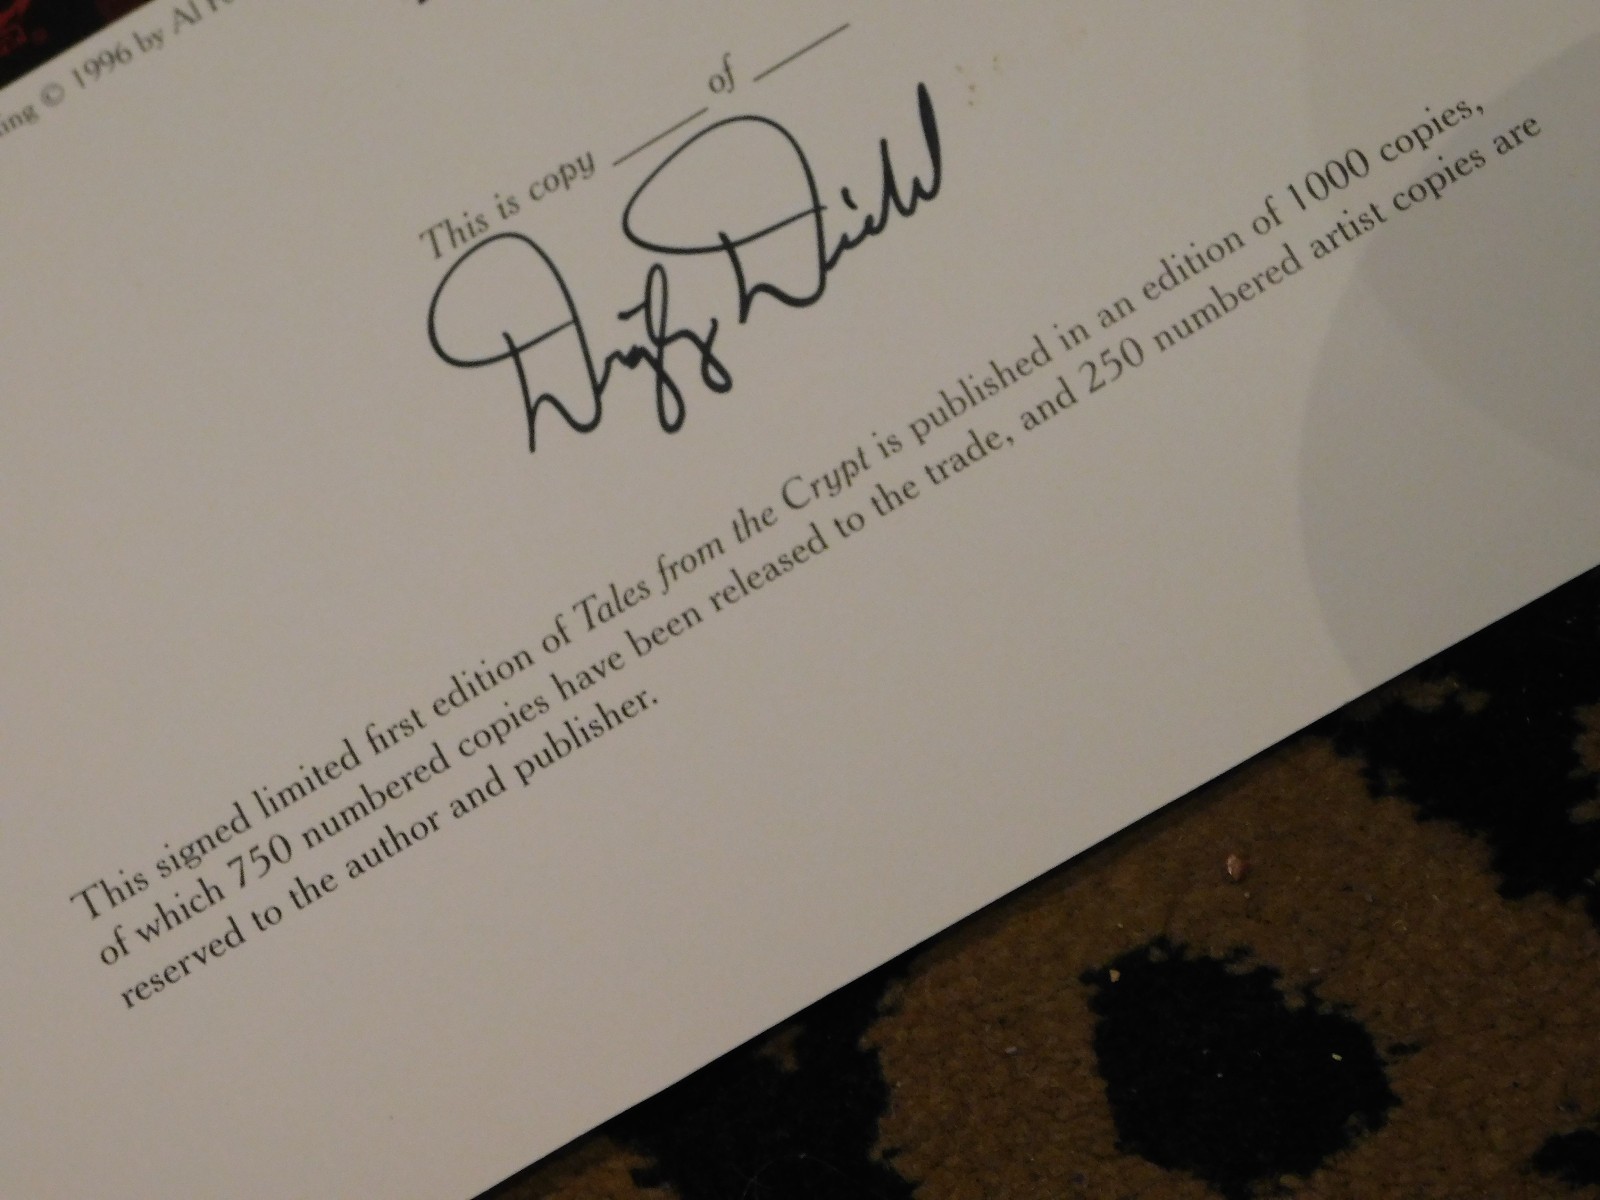 ing © 1996 by Al
This is copy ____ of ____
Digby Diehl
This signed limited first edition of Tales from the Crypt is published in an edition of 1000 copies,
of which 750 numbered copies have been released to the trade, and 250 numbered artist copies are
reserved to the author and publisher.